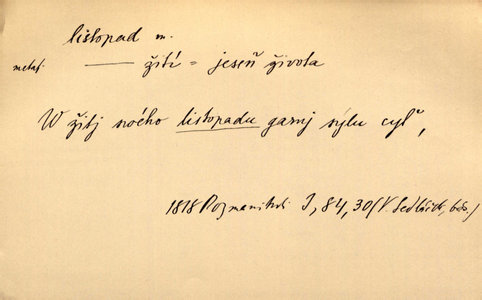 listopad m.
metaf. —— žití = jeseň života
W žitj swého listopadu garnj sýlu cyť,
1818 Rozmanitosti I, 84, 30 (V. Sedláček, bás.)